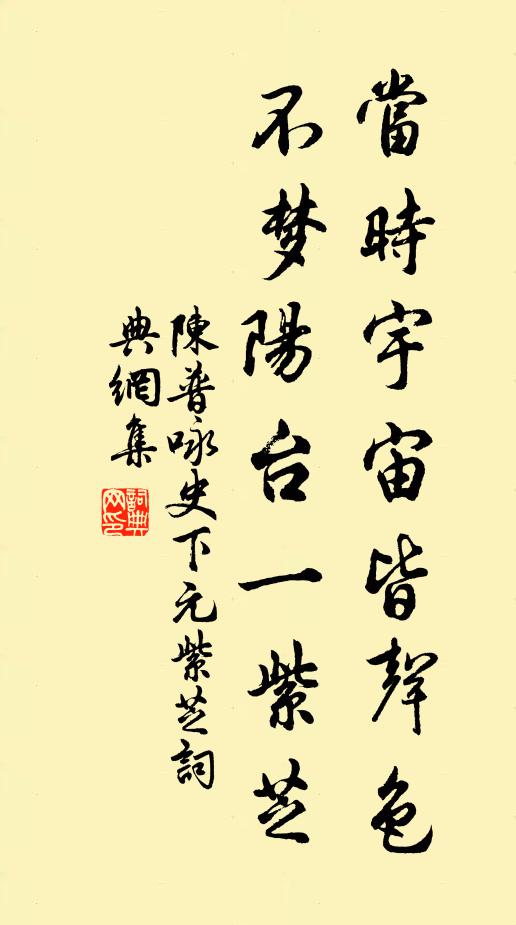 當時宇宙皆聲色
不梦陽台一紫芝
陳普咏史下元紫芝詞
典網集
詞典网印